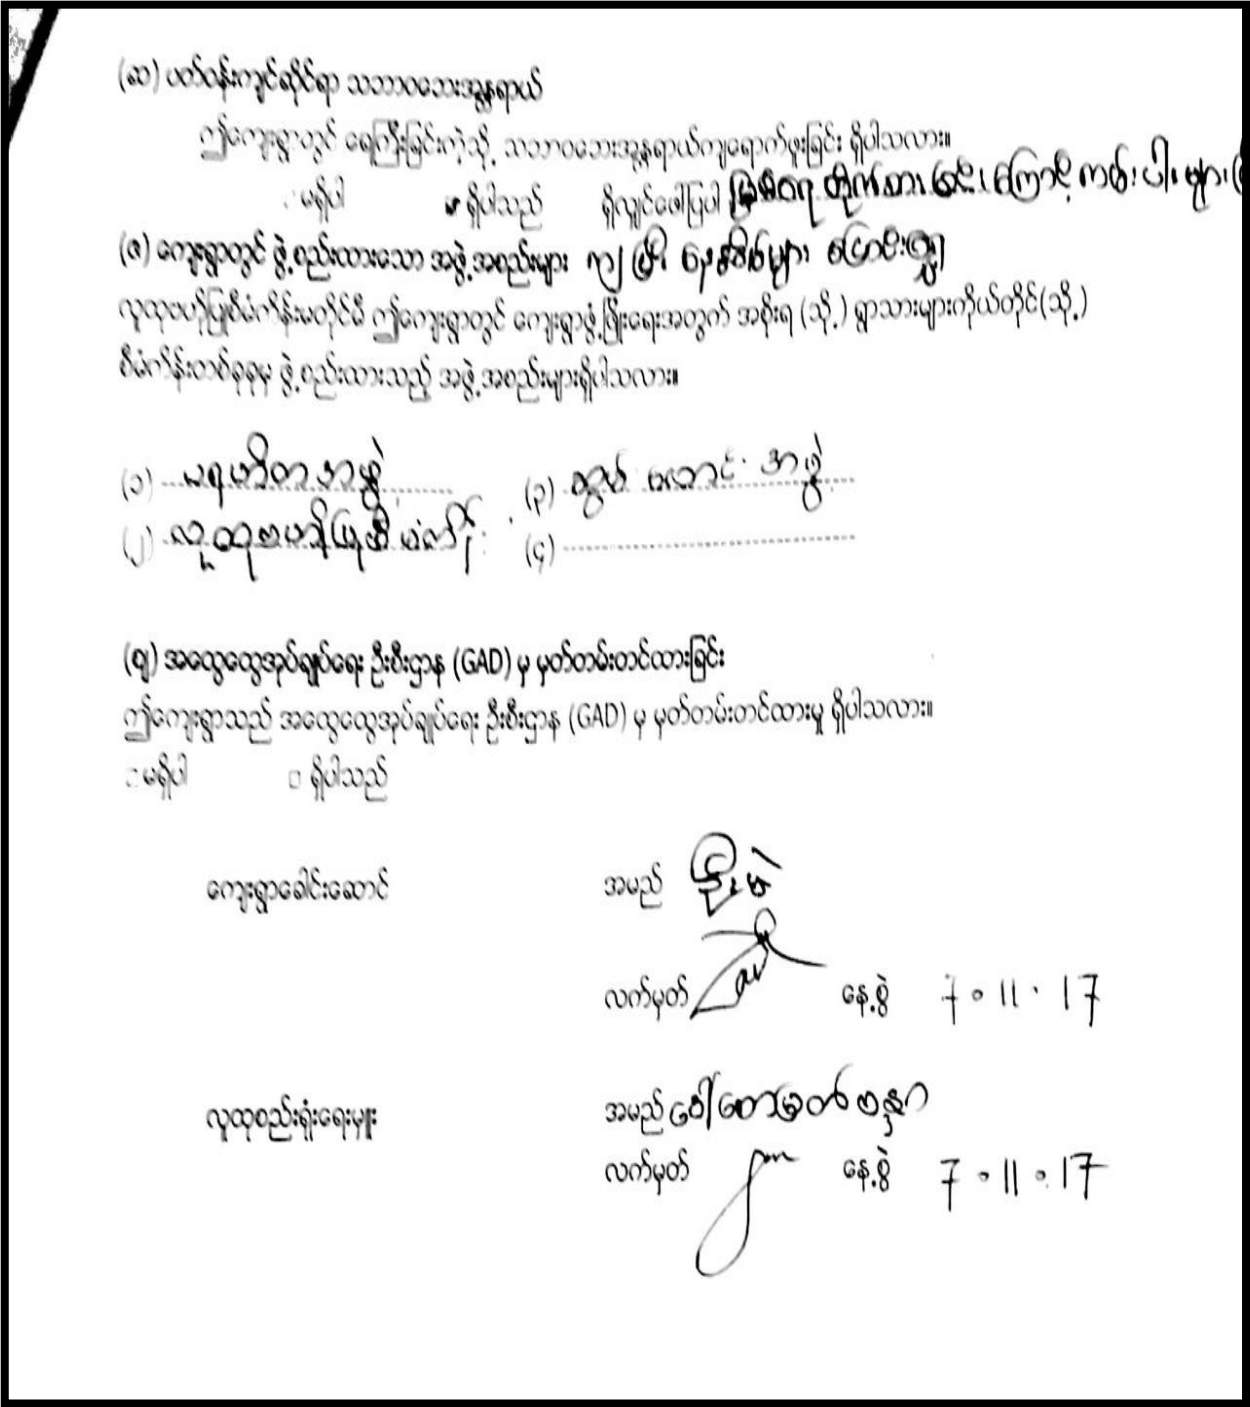 (ဆ) ပတ်ဝန်းကျင်ဆိုင်ရာ သဘာဝဘေးအန္တရာယ်
ဤကျေးရွာတွင် ရေကြီးခြင်းကဲ့သို့ သဘာဝဘေးအန္တရာယ်ကျရောက်ဖူးခြင်း ရှိပါသလား။
မရှိပါ ရှိပါသည် ရှိလျှင်ဖော်ပြပါ မြစ်ရေ တိုက်စား ကြောင့် ကမ်းပါးများ
(ဇ) ကျေးရွာတွင် ဖွဲ့စည်းထားသော အဖွဲ့အစည်းများ
လူထုဗဟိုပြုစီမံကိန်းမတိုင်မီ ဤကျေးရွာတွင် ကျေးရွာဖွံ့ဖြိုးရေးအတွက် အစိုးရ (သို့) ရွာသားများကိုယ်တိုင်(သို့)
စီမံကိန်းတစ်ခုခုမှ ဖွဲ့စည်းထားသည့် အဖွဲ့အစည်းများရှိပါသလား။
(၁) ပရဟိတအဖွဲ့ (၃) အဖွဲ့
(၂) လူထုဗဟိုပြုစီမံကိန်း (၄)
(ဈ) အထွေထွေအုပ်ချုပ်ရေး ဦးစီးဌာန (GAD) မှ မှတ်တမ်းတင်ထားခြင်း
ဤကျေးရွာသည် အထွေထွေအုပ်ချုပ်ရေး ဦးစီးဌာန (GAD) မှ မှတ်တမ်းတင်ထားမှု ရှိပါသလား။
မရှိပါ ရှိပါသည်
ကျေးရွာခေါင်းဆောင် အမည်
လက်မှတ် နေ့စွဲ 7.11.17
လူထုစည်းရုံးရေးမှူး အမည် ဒေါ်
လက်မှတ် နေ့စွဲ 7.11.17